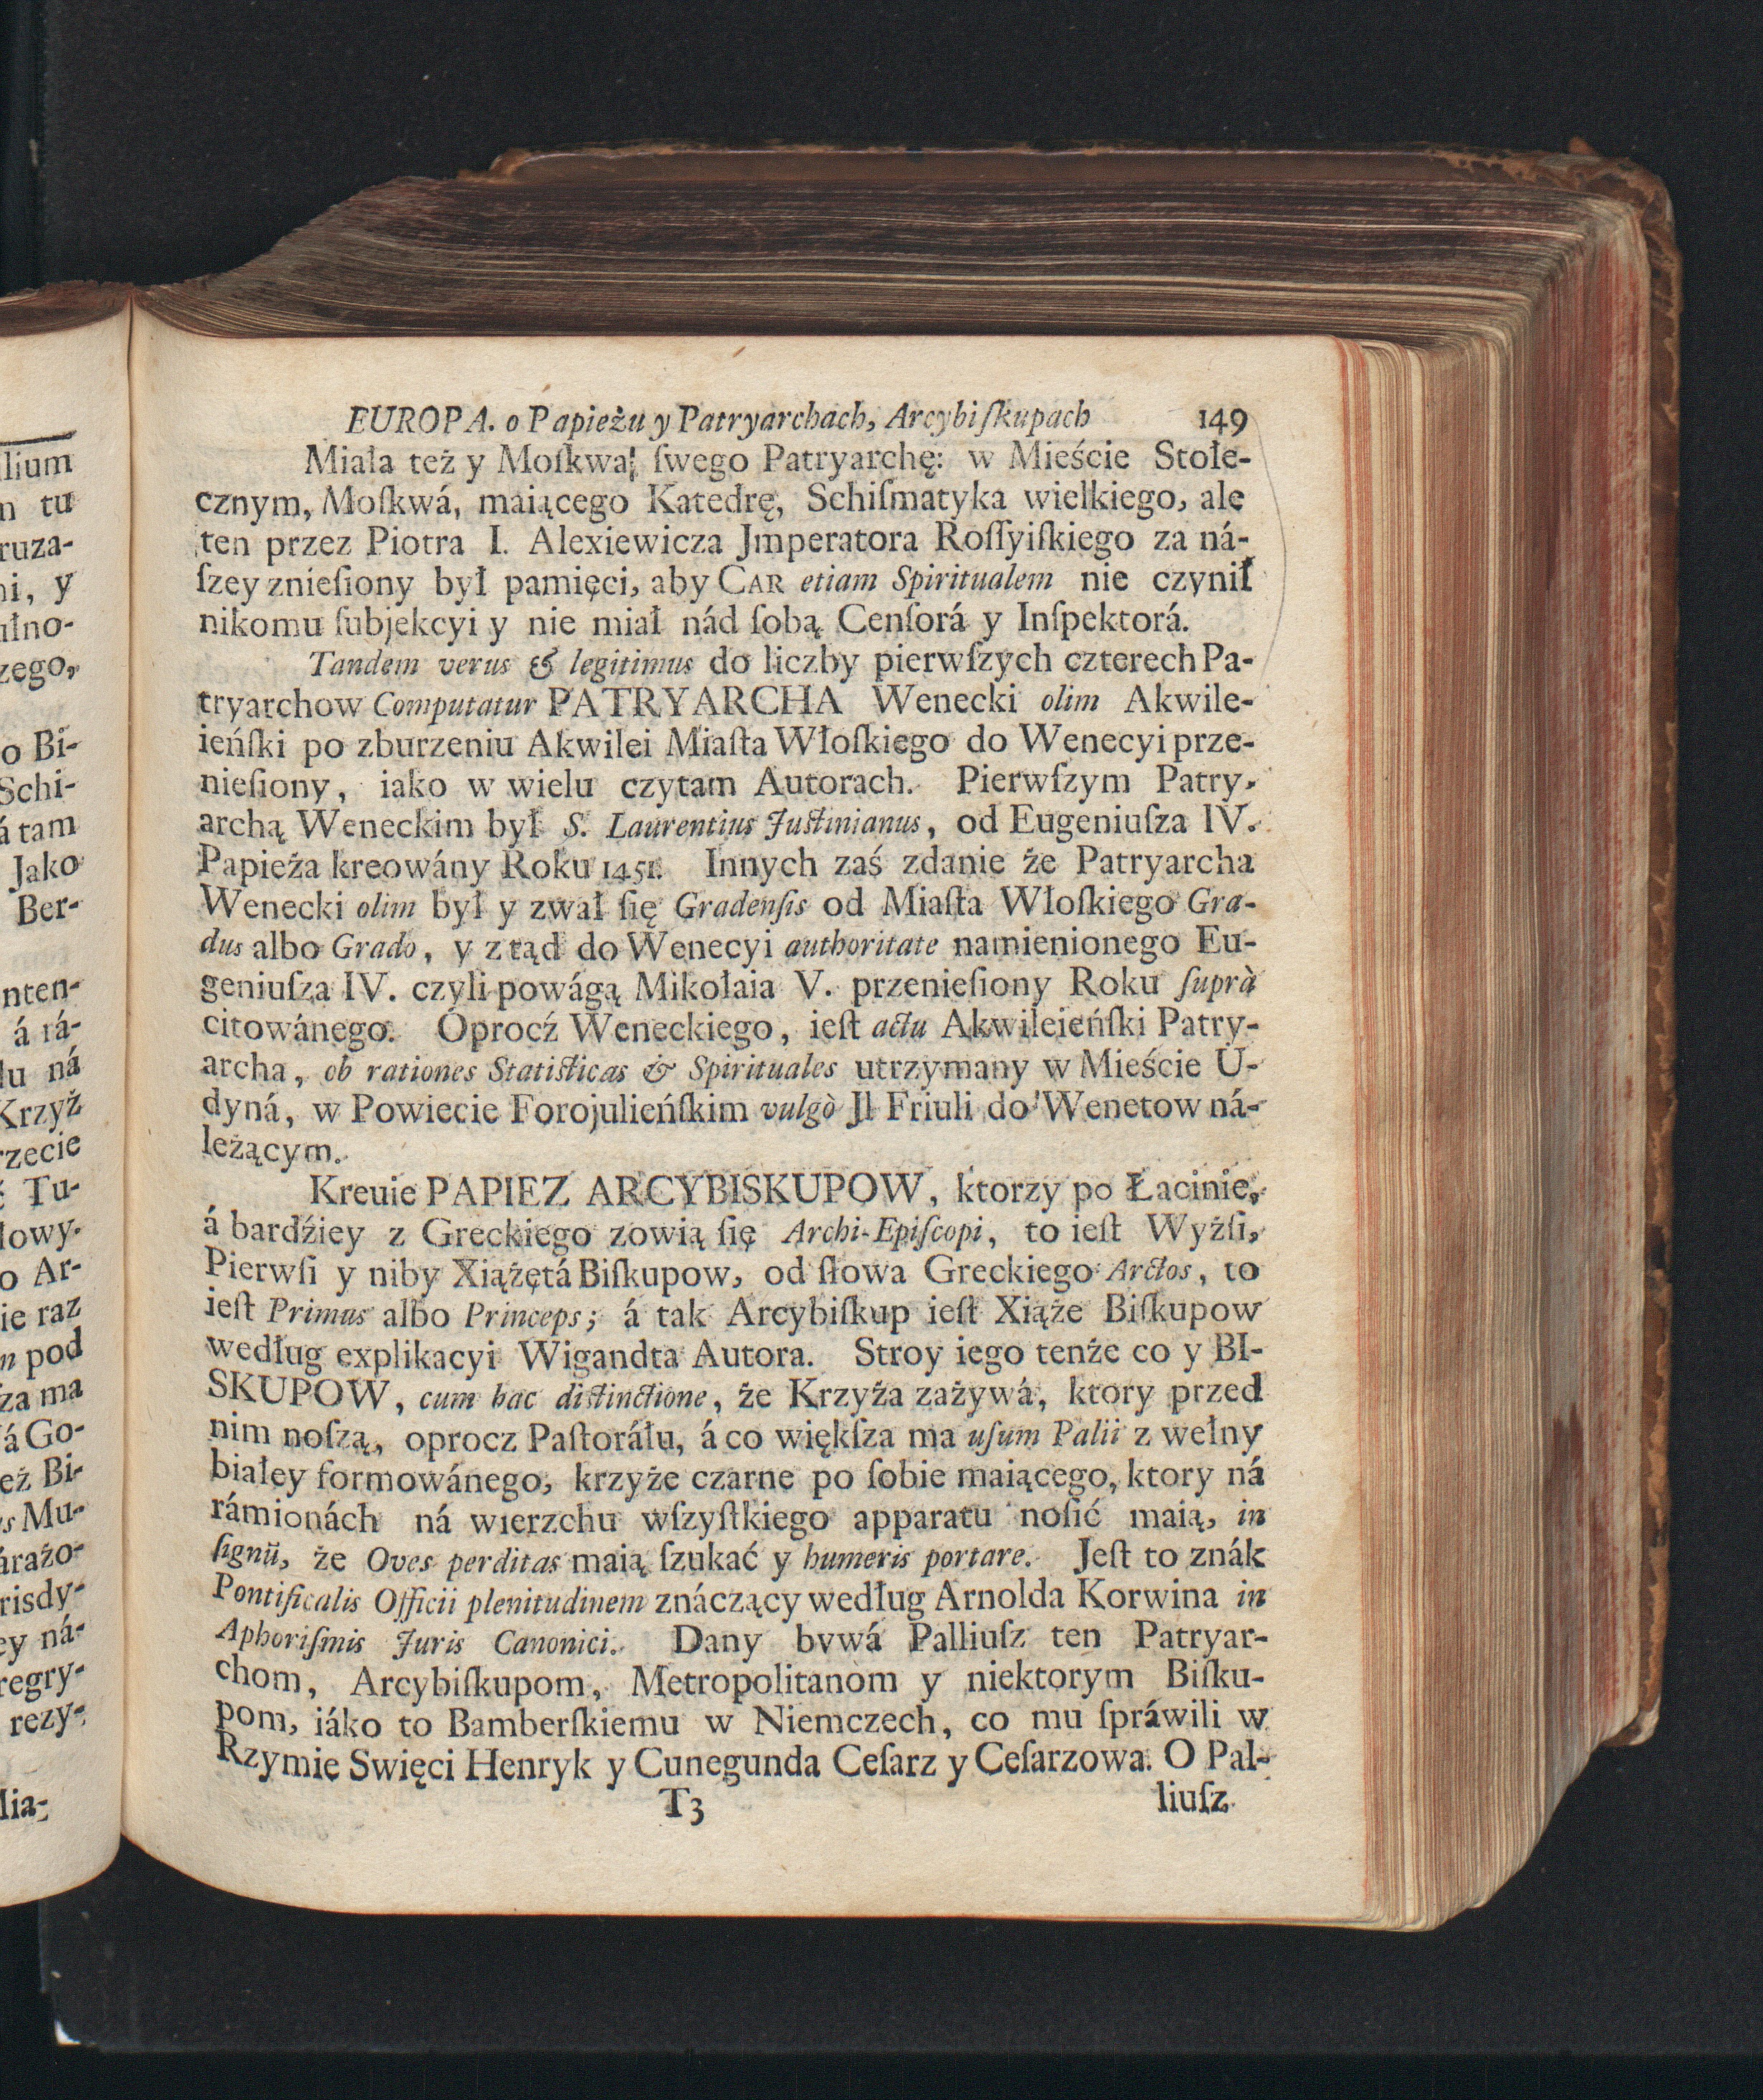 lium
n tu
ruza-
ni, y
ulno-
zego,
o Bi-
Schi-
á tam
Jako
Ber-
nten-
á rá-
lu ná
Krzyż
rzecie
Tu-
lowy.
o Ar-
ie raz
n pod
ſza ma
á Go-
eż Bi-
s Mu-
árażo-
risdy-
ey ná-
regry-
rezy-
Mia-
EUROPA. o Papieżu y Patryarchach, Arcybiſkupach 149
Miała też y Moſkwa ſwego Patryarchę: w Mieście Stołe-
cznym, Moſkwá, maiącego Katedrę, Schiſmatyka wielkiego, ale
ten przez Piotra I. Alexiewicza Jmperatora Roſſyiſkiego za ná-
ſzey znieſiony był pamięci, aby CAR etiam Spiritualem nie czynił
nikomu ſubjekcyi y nie miał nád ſobą Cenſorá y Inſpektorá.
Tandem verus & legitimus do liczby pierwſzych czterech Pa-
tryarchow Computatur PATRYARCHA Wenecki olim Akwile-
ieńſki po zburzeniu Akwilei Miaſta Włoſkiego do Wenecyi prze-
nieſiony, iako w wielu czytam Autorach. Pierwſzym Patry-
archą Weneckim był S. Laurentius Juſtinianus, od Eugeniuſza IV.
Papieża kreowány Roku 1451. Innych zaś zdanie że Patryarcha
Wenecki olim był y zwał ſię Gradenſis od Miaſta Włoſkiego Gra-
dus albo Grado, y z tąd do Wenecyi authoritate namienionego Eu-
geniuſza IV. czyli powágą Mikołaia V. przenieſiony Roku ſuprà
citowánego. Oprocź Weneckiego, ieſt actu Akwileieńſki Patry-
archa, ob rationes Statiſticas & Spirituales utrzymany w Mieście U-
dyná, w Powiecie Forojulieńſkim vulgò Jl Friuli do Wenetow ná-
leżącym.
Kreuie PAPIEZ ARCYBISKUPOW, ktorzy po Łacinie,
á bardźiey z Greckiego zowią ſię Archi-Epiſcopi, to ieſt Wyżſi,
Pierwſi y niby Xiążętá Biſkupow, od ſłowa Greckiego Arctos, to
ieſt Primus albo Princeps; á tak Arcybiſkup ieſt Xiąże Biſkupow
według explikacyi Wigandta Autora. Stroy iego tenże co y BI-
SKUPOW, cum hac diſtinctione, że Krzyża zażywá, ktory przed
nim noſzą, oprocz Paſtoráłu, á co więkſza ma uſum Palii z wełny
białey formowánego, krzyże czarne po ſobie maiącego, ktory ná
rámionách ná wierzchu wſzyſtkiego apparatu noſić maią, in
ſignũ, że Oves perditas maią ſzukać y humeris portare. Jeſt to znák
Pontificalis Officii plenitudinem znáczący według Arnolda Korwina in
Aphoriſmis Juris Canonici. Dany bywá Palliuſz ten Patryar-
chom, Arcybiſkupom, Metropolitanom y niektorym Biſku-
pom, iáko to Bamberſkiemu w Niemczech, co mu ſpráwili w
Rzymie Swięci Henryk y Cunegunda Ceſarz y Ceſarzowa. O Pal-
T3 liuſz